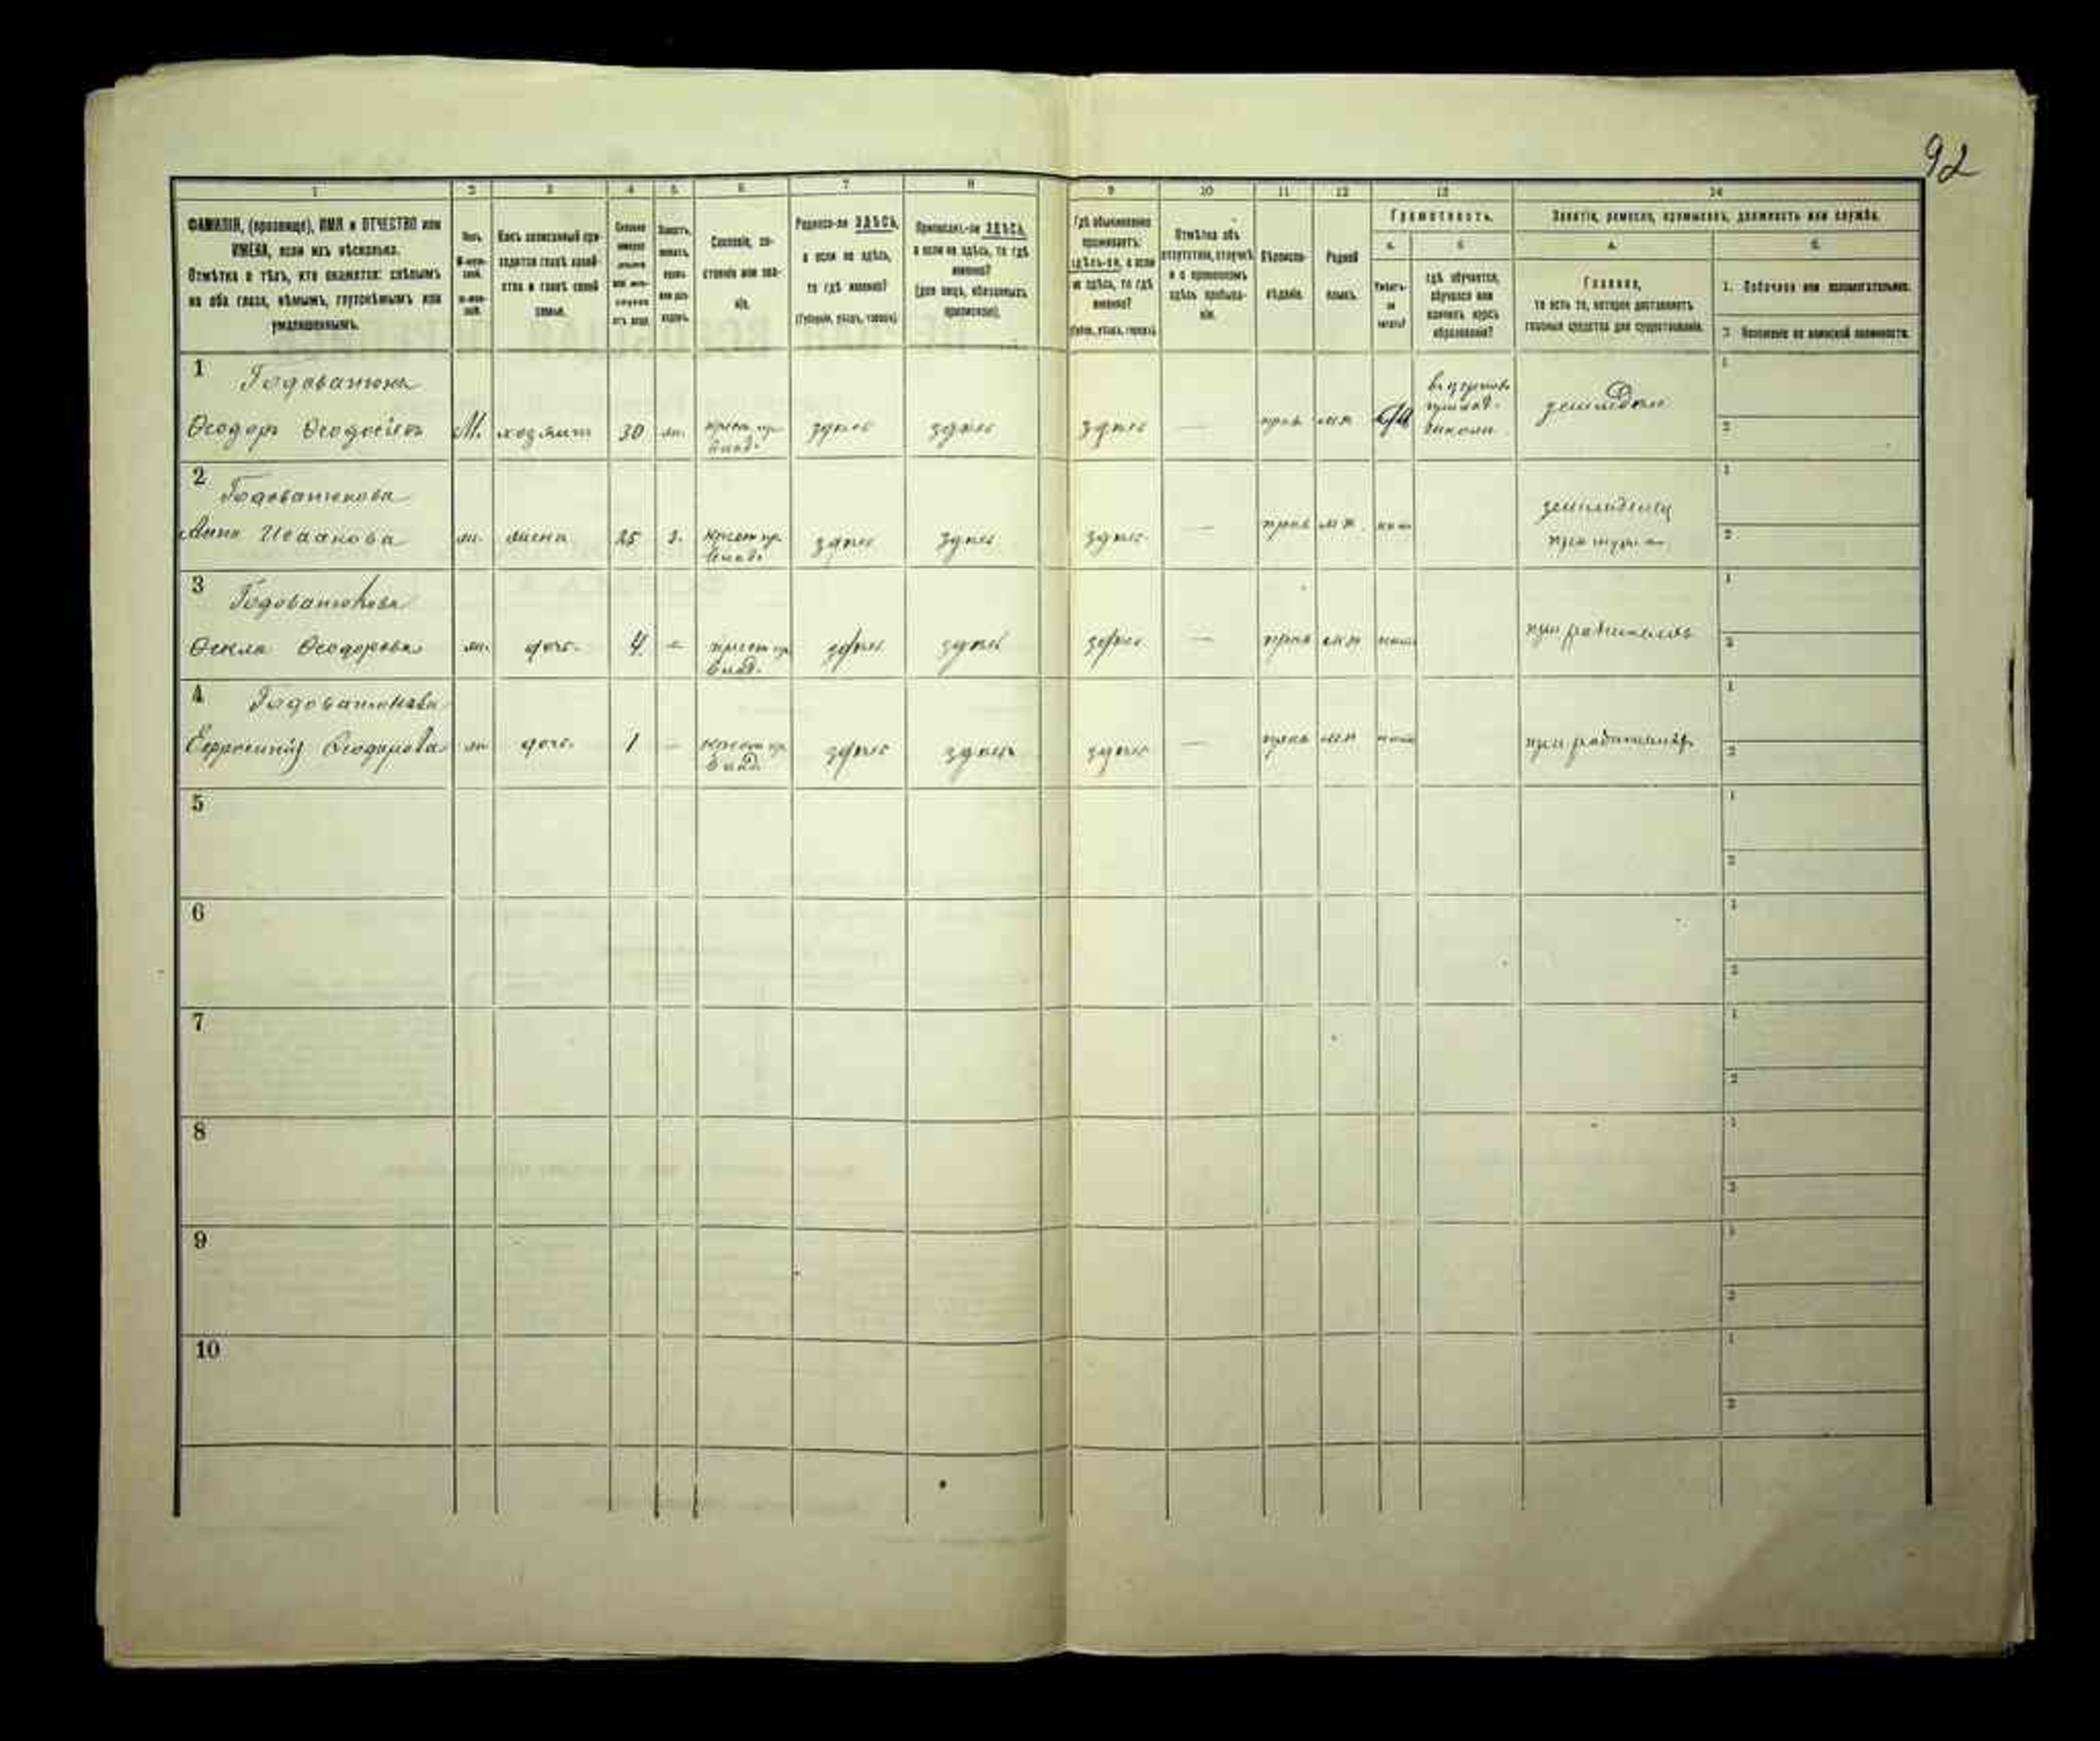 92
1 2 3 4 5 6 7 8 9 10 11 12 13 14
ФАМИЛІЯ, (прозвище), ИМЯ и ОТЧЕСТВО или
ИМЕНА, если ихъ нѣсколько.
Отмѣтка о тѣхъ, кто окажется: слѣпымъ
на оба глаза, нѣмымъ, глухонѣмымъ или
умалишеннымъ.
Полъ.
Какъ записанный при-
ходится главѣ хозяй-
ства и главѣ своей
семьи.
Сословіе, со-
стояніе или зва-
ніе.
Родился-ли ЗДѢСЬ,
а если не здѣсь,
то гдѣ именно?
(Губернія, уѣздъ, городъ).
Приписанъ-ли ЗДѢСЬ,
а если не здѣсь, то гдѣ
именно?
(для лицъ, обязанныхъ
припискою).
Гдѣ обыкновенно
проживаетъ:
здѣсь-ли, а если
не здѣсь, то гдѣ
именно?
(Губер., уѣздъ, городъ).
Отмѣтка объ
отсутствіи, отлучкѣ
и о временномъ
здѣсь пребыва-
ніи.
Вѣроиспо-
вѣданіе.
Родной
языкъ.
Грамотность.
а. б.
Умѣетъ-
ли
читать?
гдѣ обучается,
обучался или
кончилъ курсъ
образованія?
Занятіе, ремесло, промыселъ, должность или служба.
а. б.
Главное,
то есть то, которое доставляетъ
главныя средства для существованія.
1. Побочное или вспомогательное.
2. Положеніе по воинской повинности.
1 Годованюкъ
Ѳеодоръ Ѳеодосіевъ М. хозяинъ 30 ж. крест. здѣсь здѣсь здѣсь — прав мл
школи
2 Годованюкова
Анна Иванова ж. жена 25 з. здѣсь здѣсь здѣсь — прав мл нет
3 Годованюкова
Ѳекла Ѳеодорова ж. дочь 4 - здѣсь здѣсь здѣсь — прав мл нет при родителяхъ
4 Годованюкова
Ефросинія Ѳеодорова ж дочь 1 - здѣсь здѣсь здѣсь — прав мл нет при родителяхъ
5
6
7
8
9
10